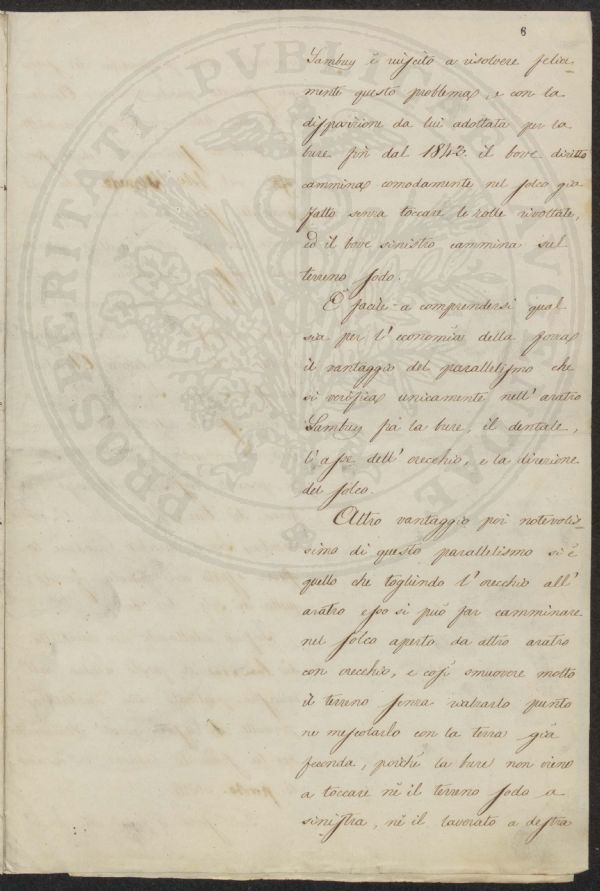 8
Sambuy è riuscito a risolvere felice-
mente questo problema, e con la
disposizione da lui adottata per la
bure fin dal 1842. il bove diritto
cammina comodamente nel solco già
fatto senza toccare le zolle rivoltate,
ed il bove sinistro cammina sul
terreno sodo.
E' facile a comprendersi qual
sia per l'economia della forza
il vantaggio del parallelismo che
si verifica unicamente nell'aratro
Sambuy frà la bure, il dentale,
l'asse dell'orecchio, e la direzione
del solco.
Altro vantaggio poi notevolis-
simo di questo parallelismo si è
quello che togliendo l'orecchio all'
aratro esso si può far camminare
nel solco aperto da altro aratro
con orecchio, e così smuovere molto
il terreno senza inalzarlo punto
ne mescolarlo con la terra già
feconda, poichè la bure non viene
a toccare nè il terreno sodo a
sinistra, nè il lavorato a destra
PROSPERITATI PVBLICAE AVGENDAE